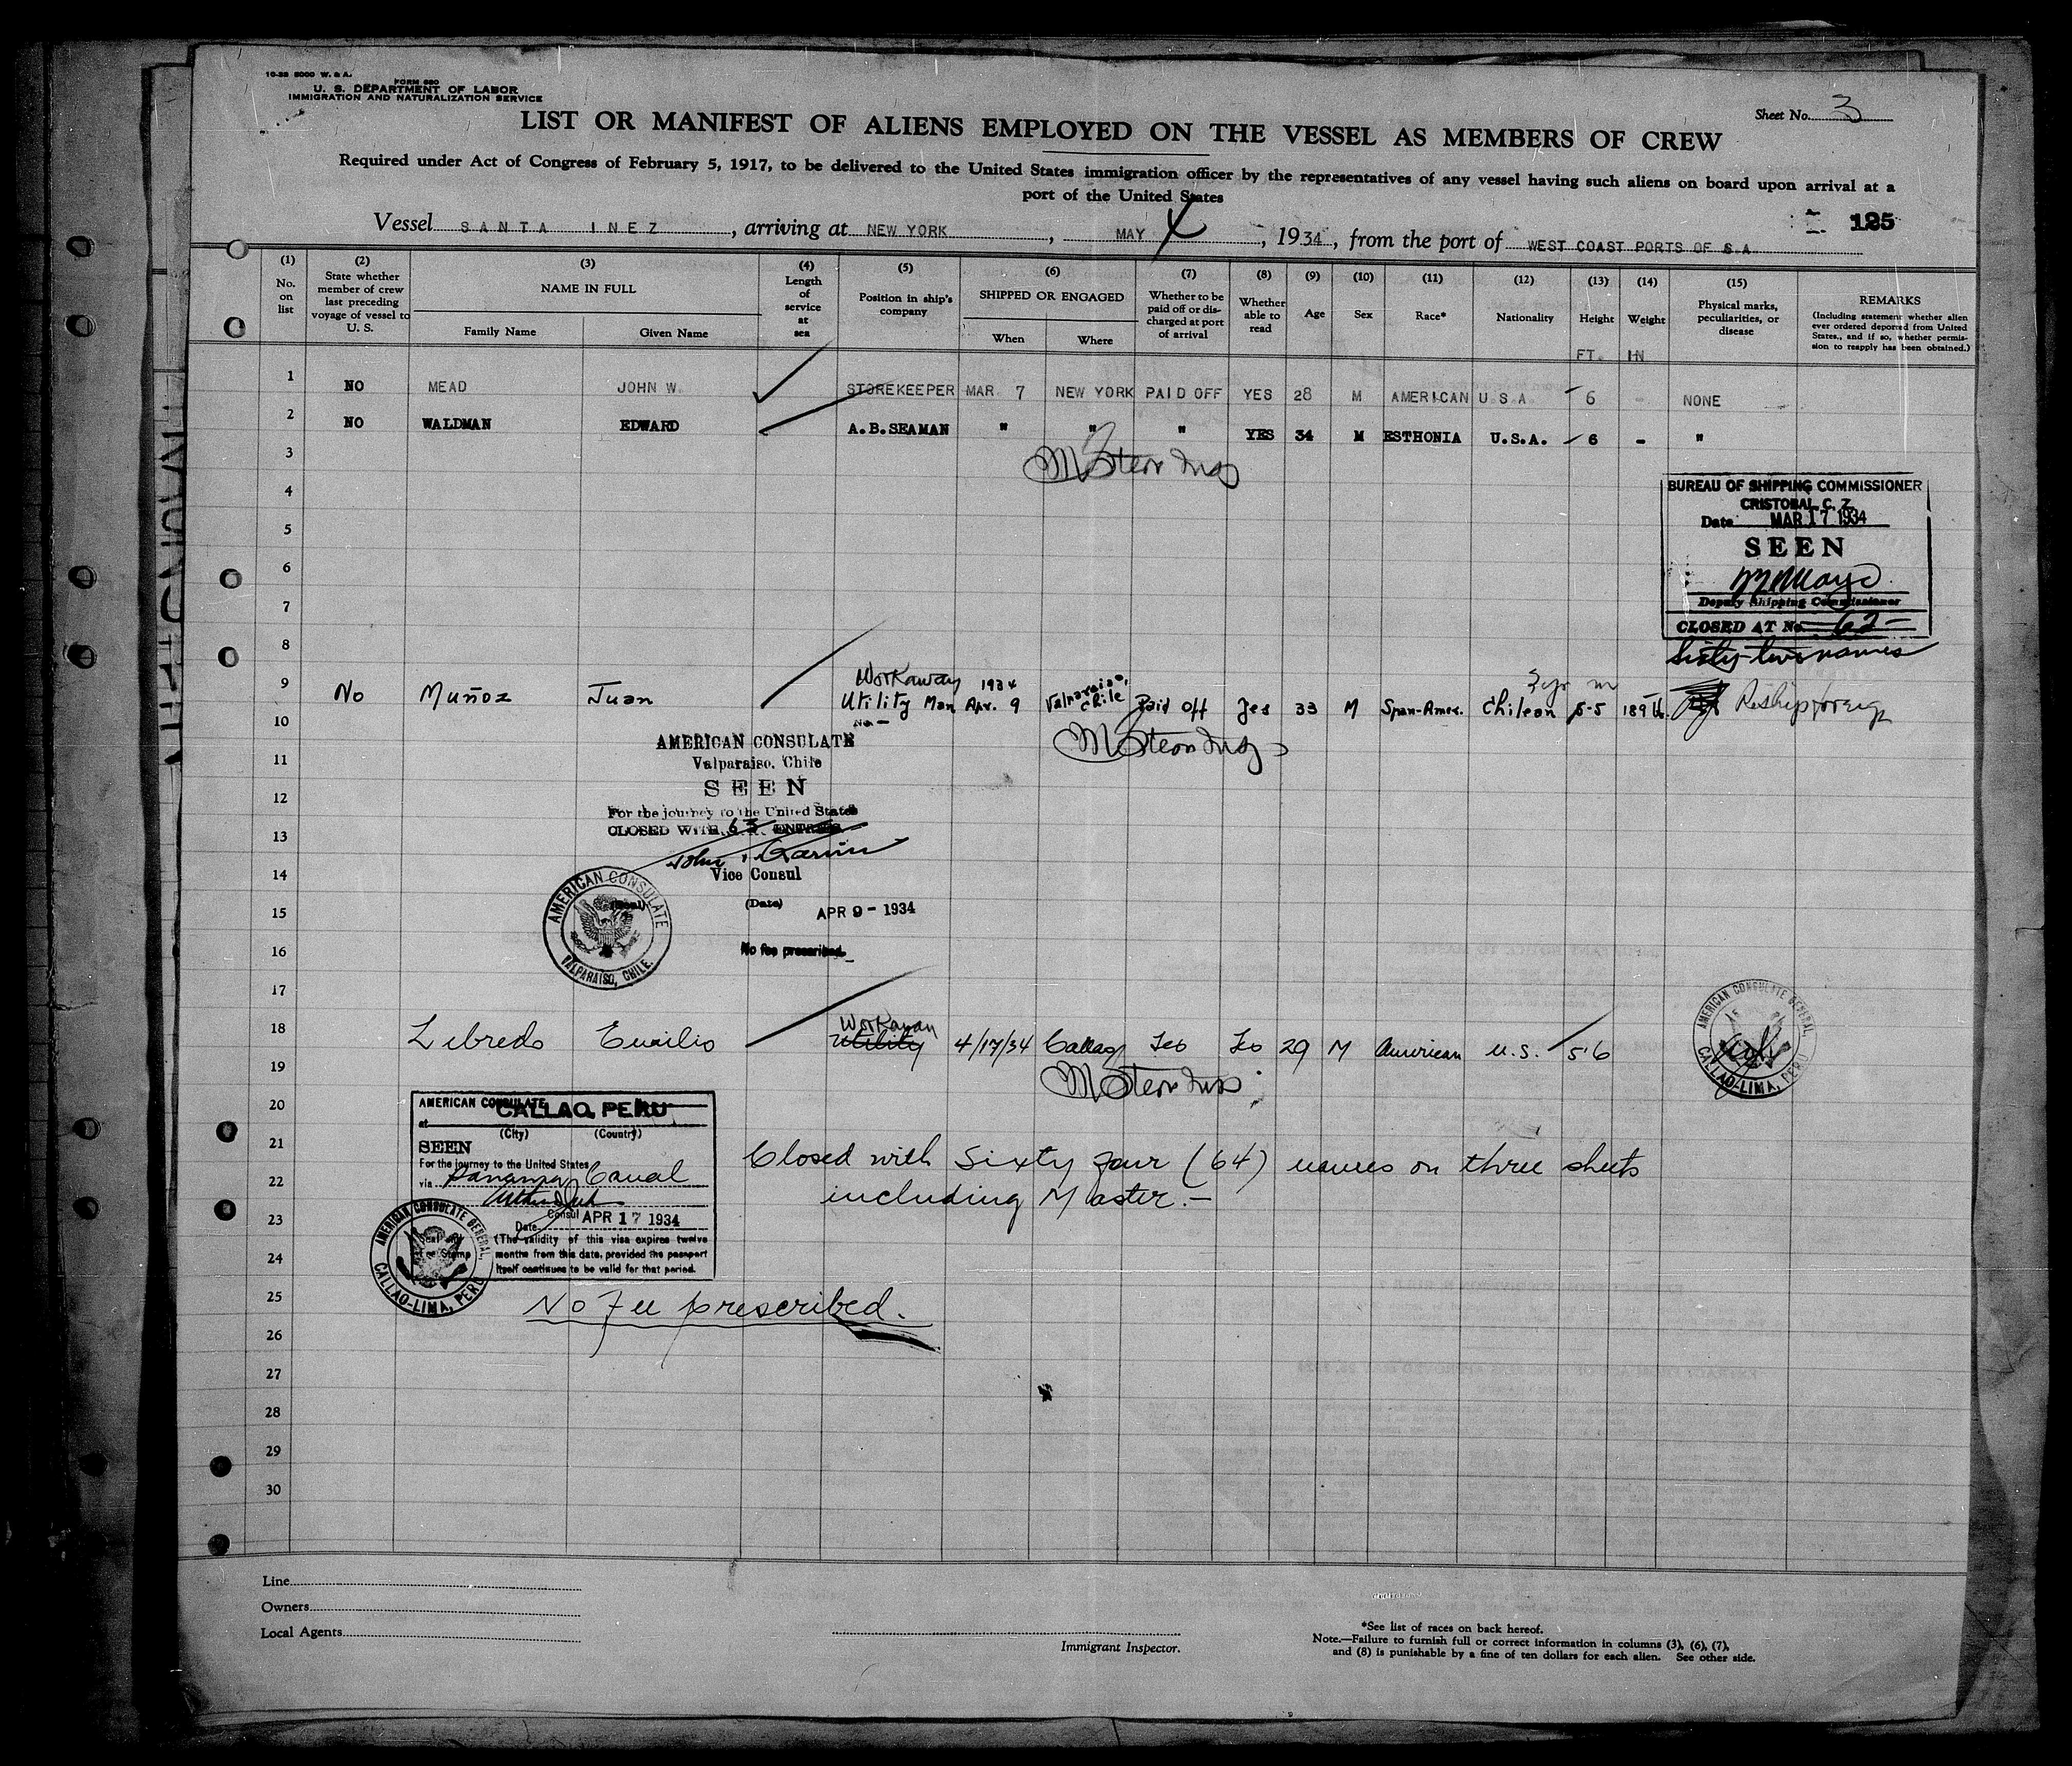 10-33 5000 W. & A.
FORM 680
U. S. DEPARTMENT OF LABOR
IMMIGRATION AND NATURALIZATION SERVICE
Sheet No. 3
LIST OR MANIFEST OF ALIENS EMPLOYED ON THE VESSEL AS MEMBERS OF CREW
Required under Act of Congress of February 5, 1917, to be delivered to the United States immigration officer by the representatives of any vessel having such aliens on board upon arrival at a
port of the United States
Vessel SANTA INEZ, arriving at NEW YORK, MAY, 1934, from the port of WEST COAST PORTS OF S.A
125
(1) No. on list
(2) State whether member of crew last preceding voyage of vessel to U. S.
(3) NAME IN FULL
Family Name
Given Name
(4) Length of service at sea
(5) Position in ship's company
(6) SHIPPED OR ENGAGED
When
Where
(7) Whether to be paid off or discharged at port of arrival
(8) Whether able to read
(9) Age
(10) Sex
(11) Race*
(12) Nationality
(13) Height
(14) Weight
(15) Physical marks, peculiarities, or disease
REMARKS
(Including statement whether alien ever ordered deported from United States, and if so, whether permission to reapply has been obtained.)
FT. IN
1 NO MEAD JOHN W. STOREKEEPER MAR. 7 NEW YORK PAID OFF YES 28 M AMERICAN U S A 6 - NONE
2 NO WALDMAN EDWARD A.B.SEAMAN " " " YES 34 M ESTHONIA U.S.A. 6 - "
3
4
BUREAU OF SHIPPING COMMISSIONER
CRISTOBAL, C. Z.
Date MAR 17 1934
5
SEEN
6
Deputy Shipping Commissioner
7
CLOSED AT No. 62-
8
Sixty-two names
Workaway
9 No Muñoz Juan Utility Man 1934 Apr. 9 Valparaiso, Chile Paid Off Yes 33 M Span-Amer. Chilean 5-5 189 lb. Reship foreign
10
AMERICAN CONSULATE
11
Valparaiso, Chile
SEEN
12
For the journey to the United States
CLOSED WITH 63 ENTRIES
13
14
Vice Consul
15
(Seal)
(Date) APR 9 - 1934
16
No fee prescribed.
AMERICAN CONSULATE VALPARAISO, CHILE.
17
Workaway
18 Libredo Emilio Utility 4/17/34 Callao Yes Yes 29 M American U.S. 5'6
AMERICAN CONSULATE GENERAL CALLAO-LIMA, PERU
19
20
AMERICAN CONSULATE
at CALLAO, PERU
(City) (Country)
21
SEEN
For the journey to the United States
via Panama Canal
Closed with Sixty four (64) names on three sheets
22
including Master.-
23
Consul
Date APR 17 1934
(The validity of this visa expires twelve
24
months from this date, provided the passport
itself continues to be valid for that period.
AMERICAN CONSULATE GENERAL CALLAO-LIMA, PERU
25
No Fee prescribed.
26
27
28
29
30
Line
Owners
Local Agents
Immigrant Inspector.
*See list of races on back hereof.
Note.—Failure to furnish full or correct information in columns (3), (6), (7),
and (8) is punishable by a fine of ten dollars for each alien. See other side.